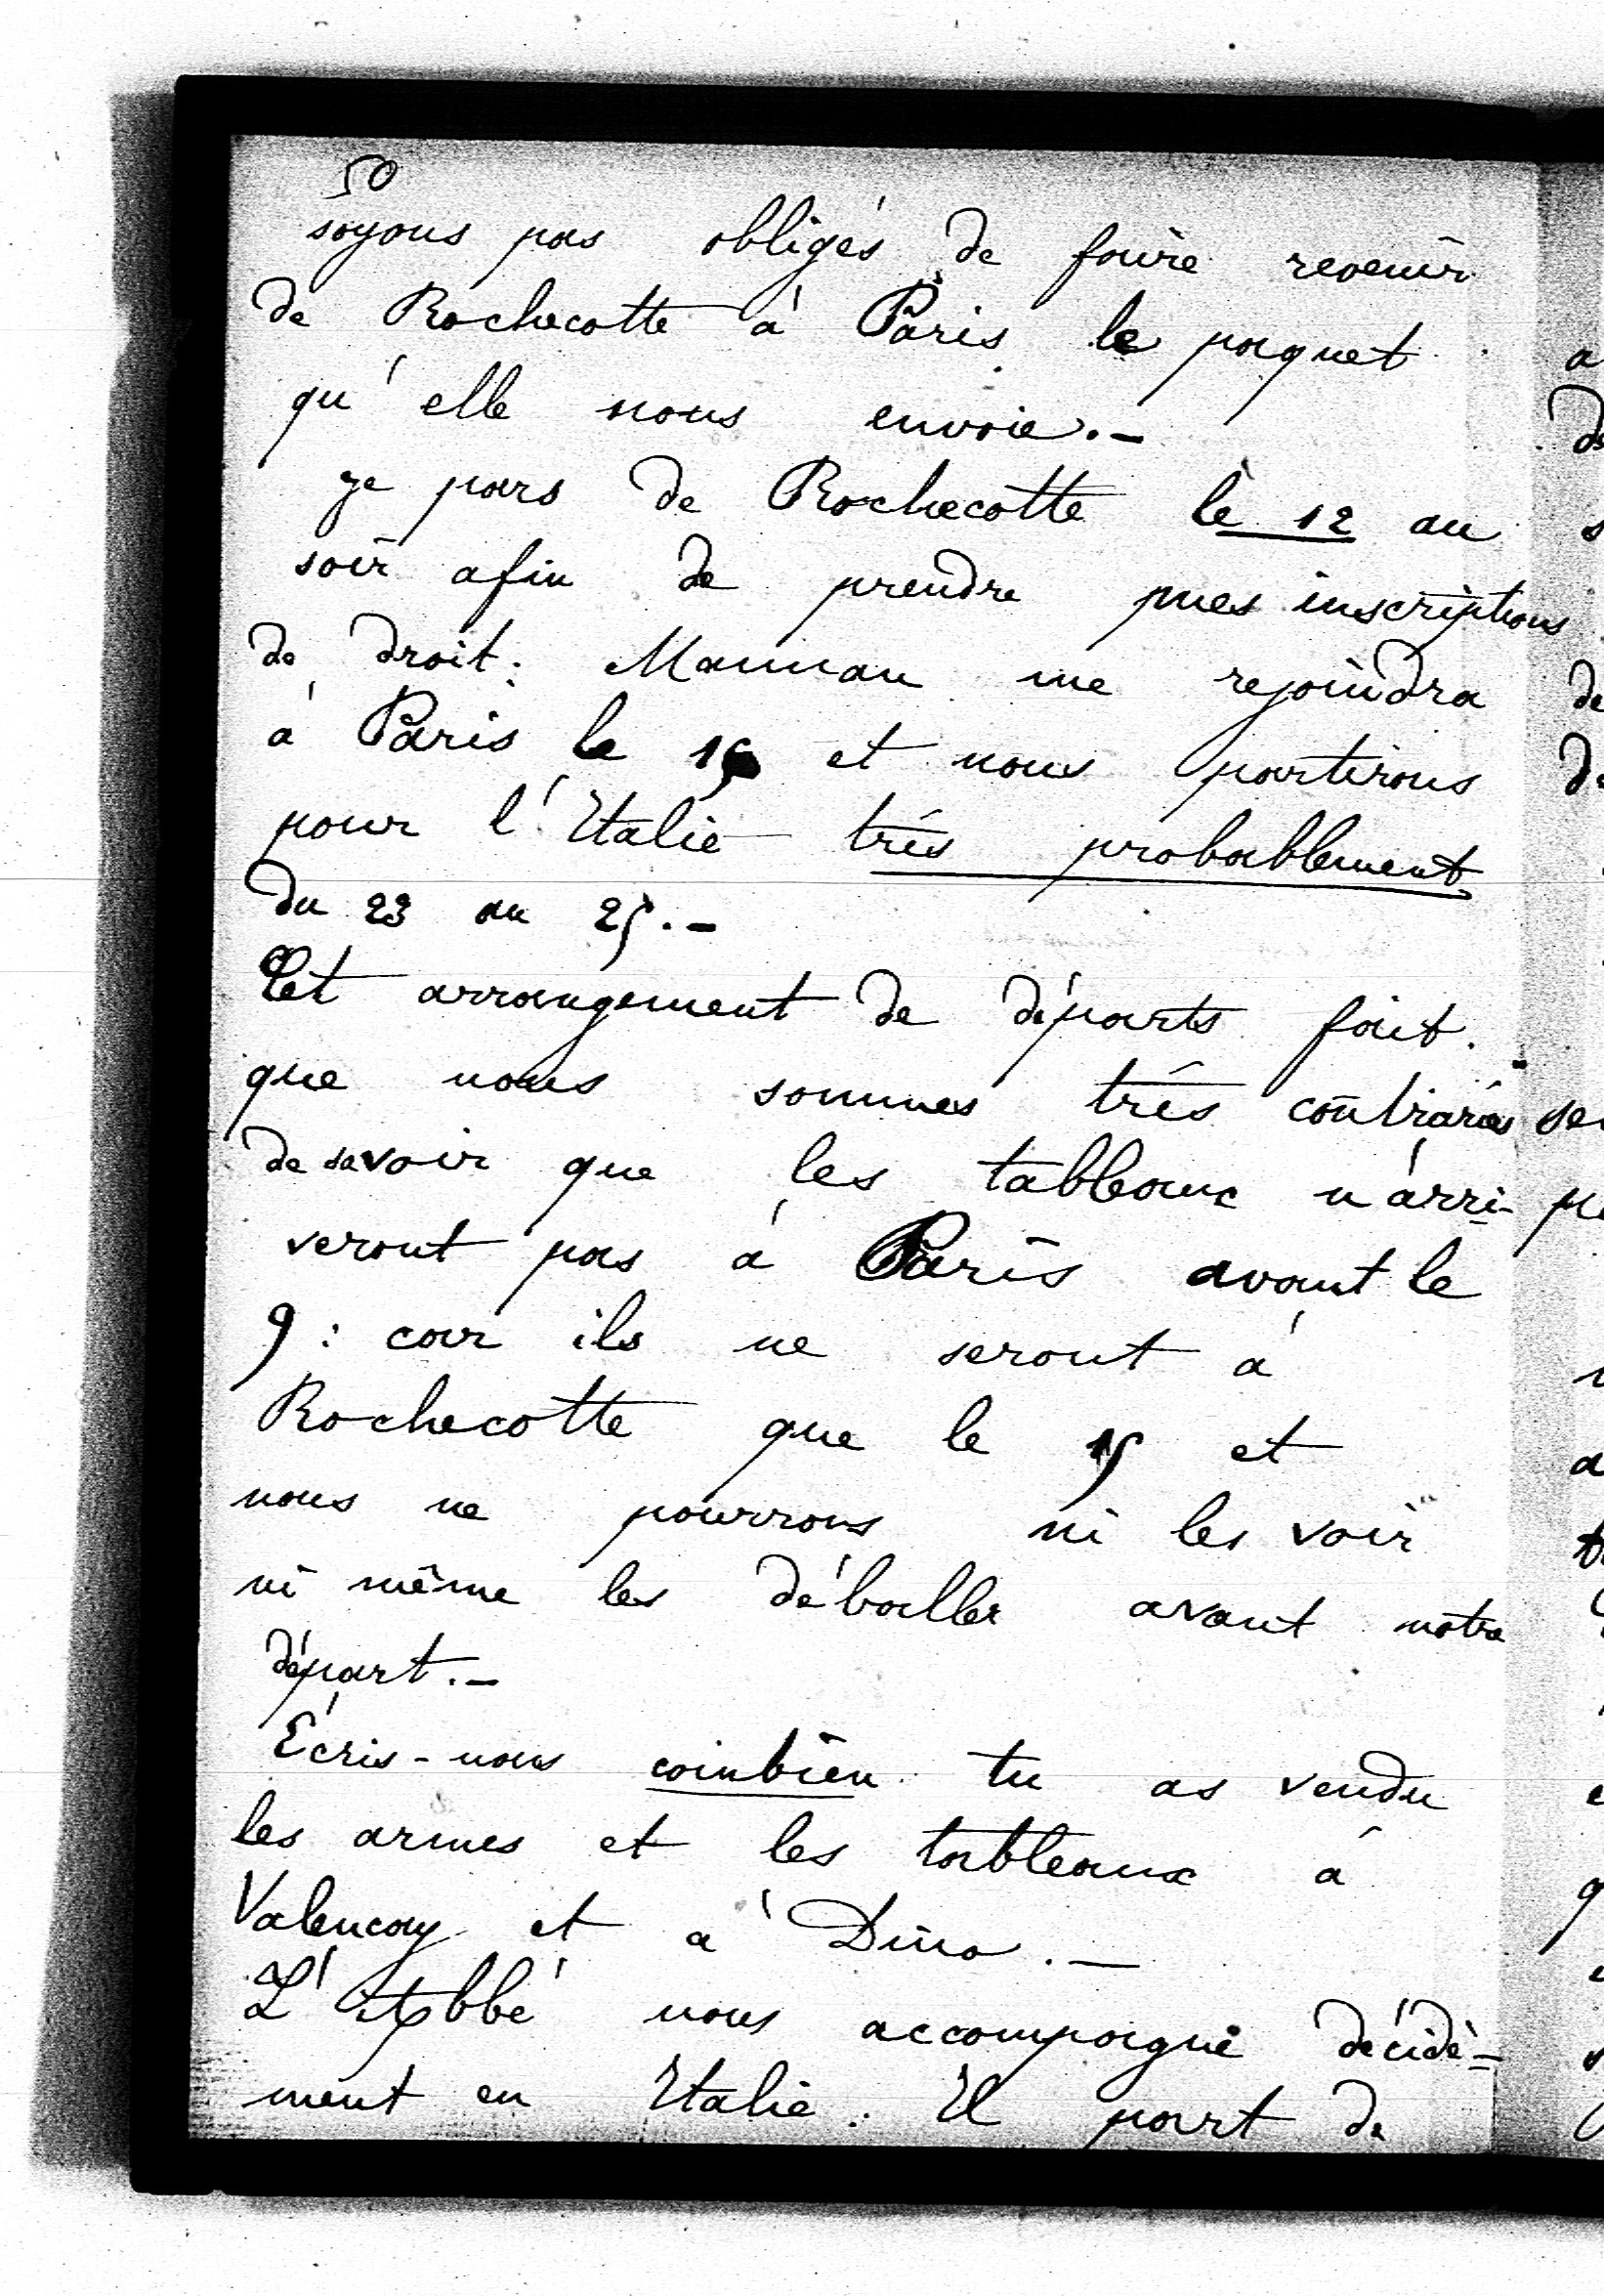 50
soyons pas obligés de faire revenir
de Rochecotte à Paris le paquet
qu'elle nous envoie.-
je pars de Rochecotte le 12 au
soir afin de prendre mes inscriptions
de droit. Maman me rejoindra
à Paris le 15 et nous partirons
pour l'Italie très probablement
du 23 au 25.-
Cet arrangement de départs fait
que nous sommes très contrariés
de savoir que les tableaux n'arri-
veront pas à Paris avant le
9: car ils ne seront à
Rochecotte que le 15 et
nous ne pourrons ni les voir
ni même les déballer avant notre
départ.-
Écris-nous combien tu as vendu
les armes et les tableaux à
Valencay et à Dino.-
L'Abbé nous accompagne décidé-
ment en Italie. Il part de